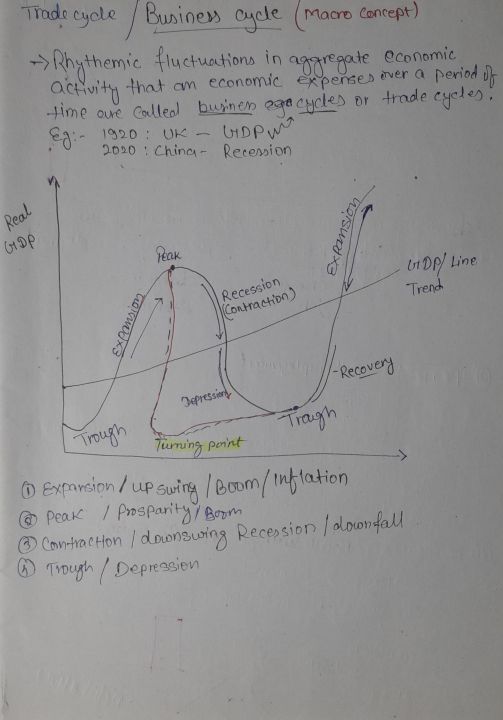 Trade cycle / Business cycle (Macro concept)
→ Rhythemic fluctuations in aggregate economic
activity that an economic expenses over a period of
time are called business cycles or trade cycles.
Eg:- 1920 : UK - GDP
2020 : China - Recession
Real
GDP
Peak
Expansion
Recession
(contraction)
Expansion
GDP/ Line
Trend
Depression
-Recovery
Trough
Trough
Turning point
① Expansion / upswing / Boom / Inflation
② Peak / Prosparity / Boom
③ Contraction / downswing Recession / downfall
④ Trough / Depression